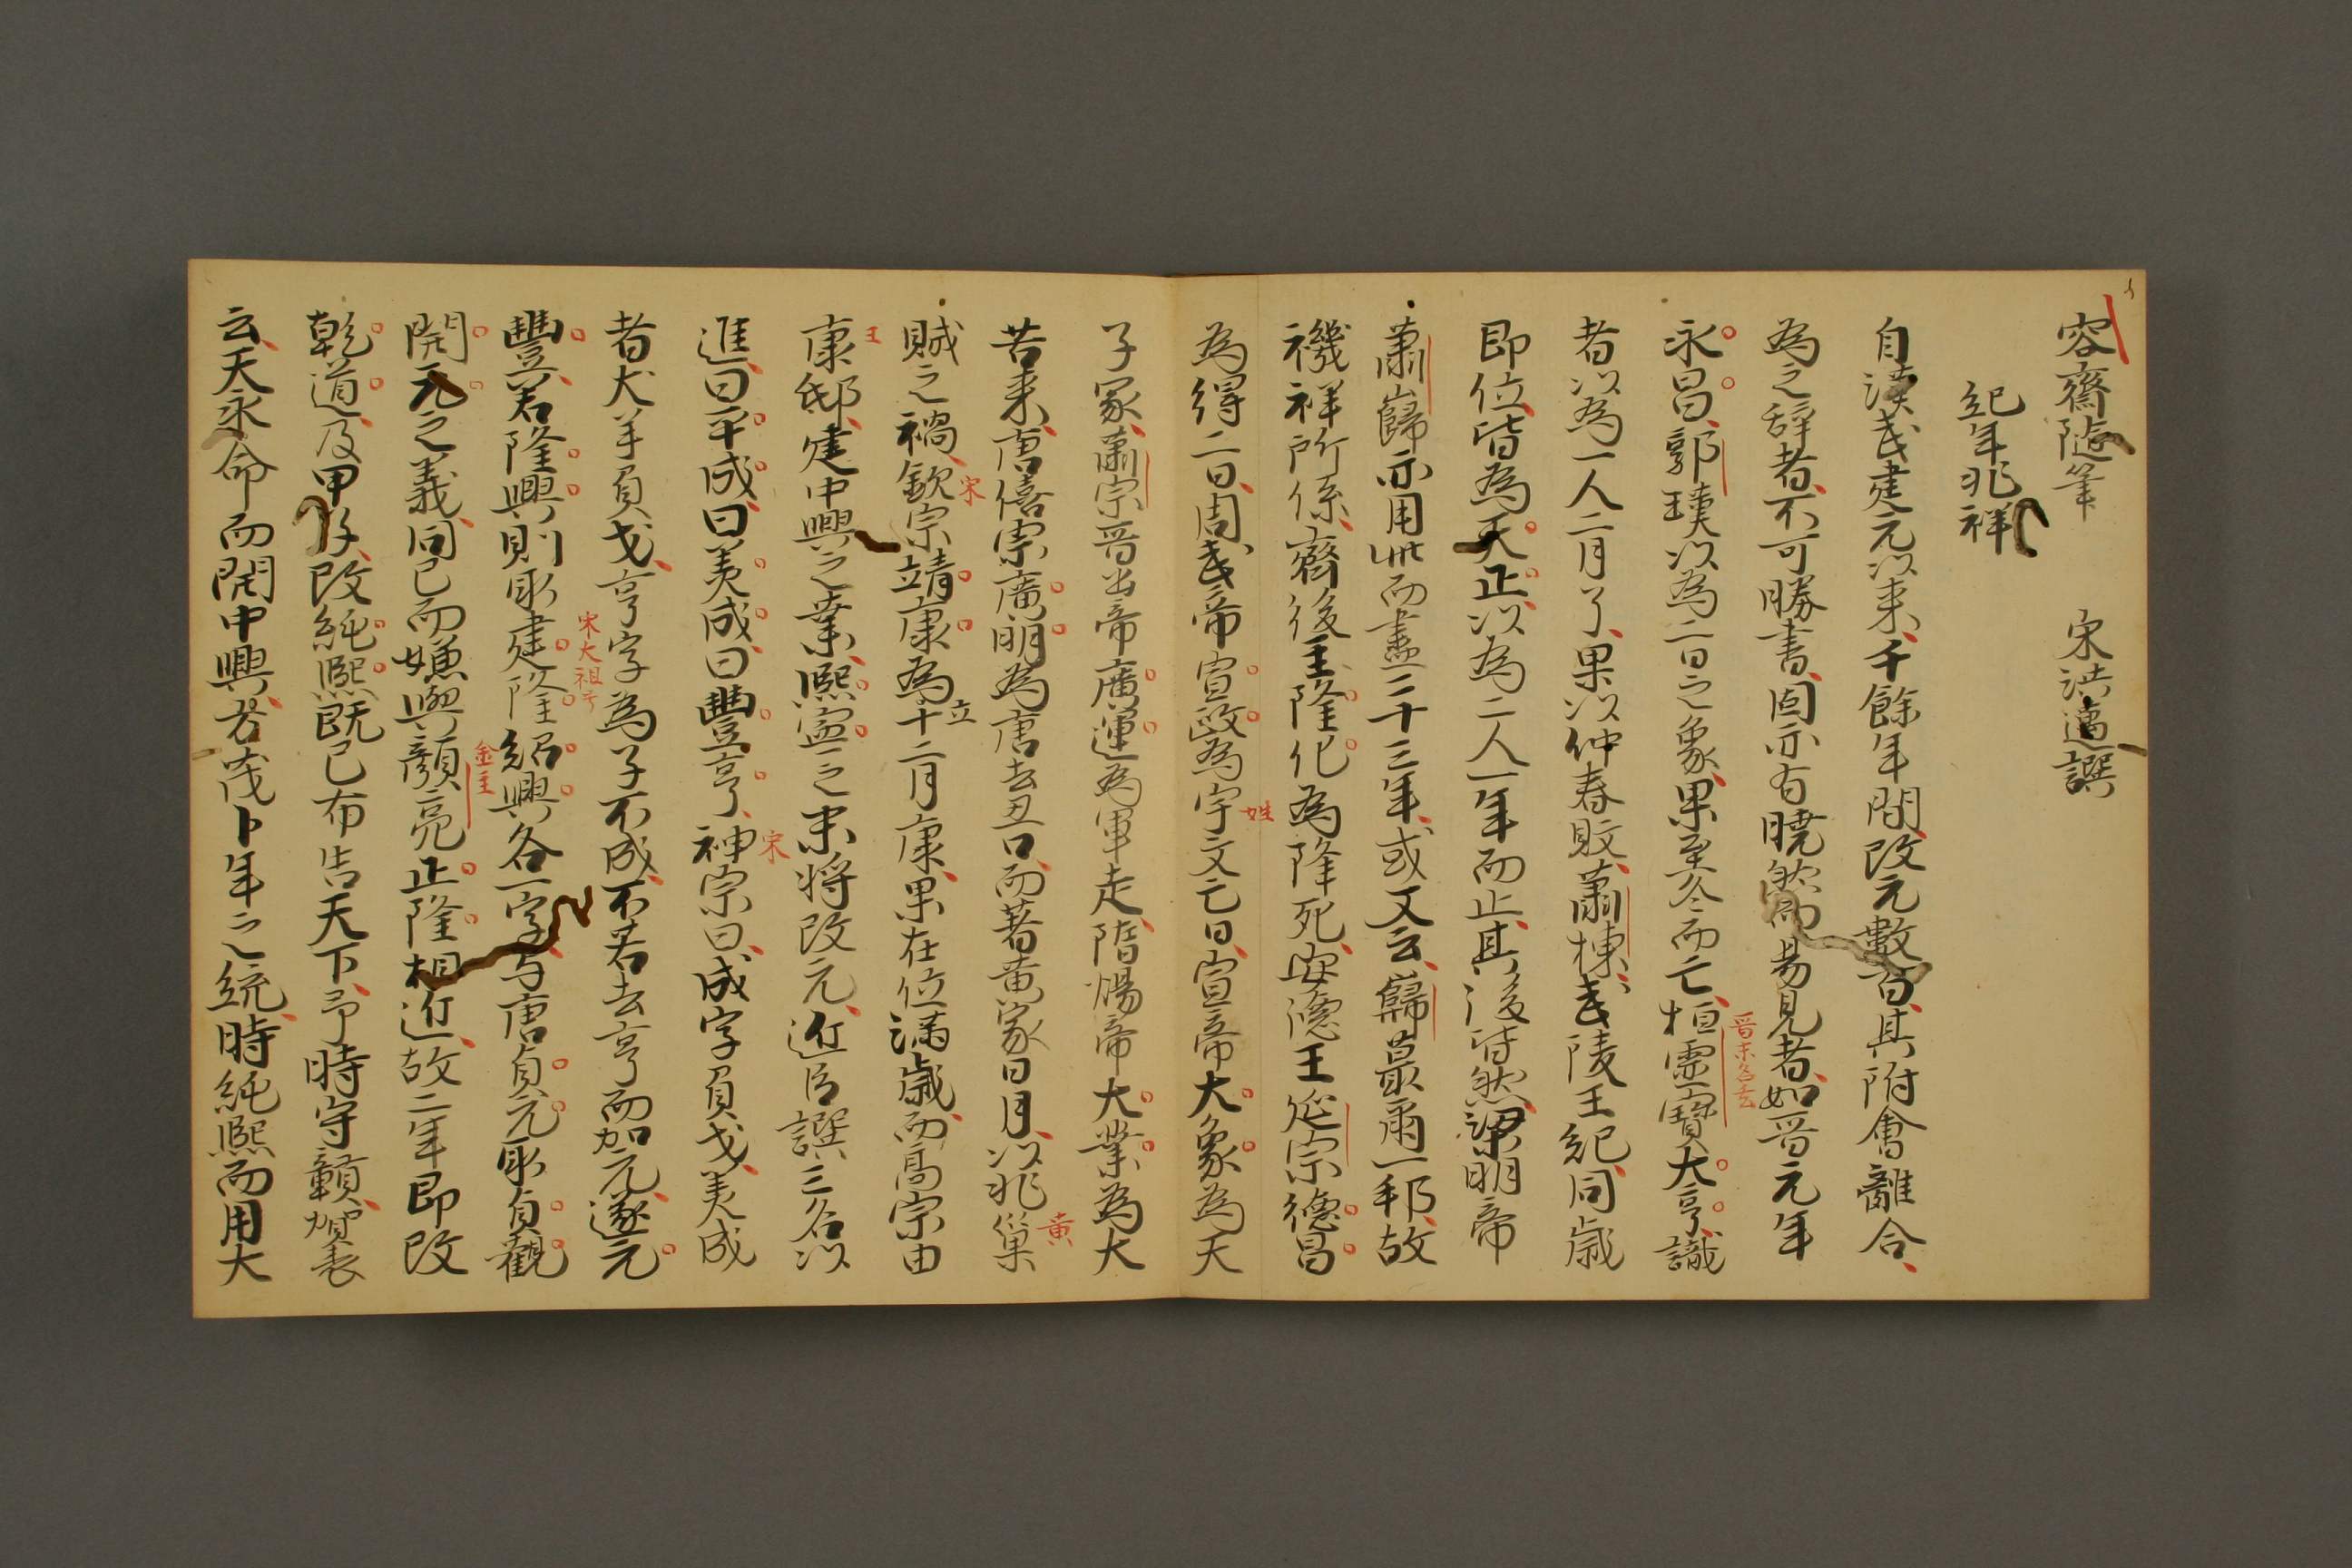 容齋隨筆　宋洪邁譔
紀年兆祥
自漢武建元以来千餘年間改元數百其附會離合
為之辞者不可勝書固亦有曉然而易見者如晋元年
永昌郭璞以為二日之象果至冬而亡桓霊寶大亨識
晋末名玄
者以為一人二月了果以仲春敗蕭棟武陵王紀同歳
即位皆為天正以為二人一年而止其後皆然梁明帝
蕭巋亦用此而盡二十三年或又云巋蕞爾一邦故
禨祥所係齊後主隆化為降死安徳王延宗徳昌
為得二日周武帝宣政為宇文亡日宣帝大象為天
姓
子冢蕭宗晋出帝廣運為軍走隋煬帝大業為大
苦来唐僖宗廣明為唐去丑口而著黄家日月以兆巣
黄
賊之禍欽宗靖康為十二月康果在位満歳而高宗由
宋
立
康邸建中興之業熈寧之末将改元近臣譔三名以
王
進曰平成曰美成曰豊亨神宗曰成字負戈美成
宋
者犬羊負戈亨字為子不成不若去亨而加元遂元
豊若隆興則取建隆紹興各一字与唐貞元取貞觀
宋大祖号
開元之義同已而嫌與顔亮正隆相近故二年即改
金主
乾道及甲午改純熈既已布告天下予時守贛賀表
云天永命而開中興方茂卜年之統時純熈而用大